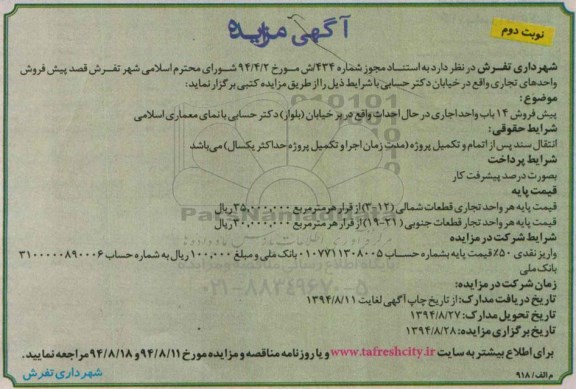 آگهی مزایده
نوبت دوم
شهرداری تفرش در نظر دارد به استناد مجوز شماره ۴۳۴/ش مورخ ۹۴/۴/۲ شورای محترم اسلامی شهر تفرش قصد پیش فروش
واحدهای تجاری واقع در خیابان دکتر حسابی با شرایط ذیل را از طریق مزایده کتبی برگزار نماید:
موضوع:
پیش فروش ۱۴ باب واحد اجاری در حال احداث واقع در بر خیابان (بلوار) دکتر حسابی با نمای معماری اسلامی
شرایط حقوقی:
انتقال سند پس از اتمام و تکمیل پروژه (مدت زمان اجرا و تکمیل پروژه حداکثر یکسال) می‌باشد
شرایط پرداخت
بصورت درصد پیشرفت کار
قیمت پایه
قیمت پایه هر واحد تجاری قطعات شمالی (۱۲-۳) از قرار هر مترمربع ۳۵,۰۰۰,۰۰۰ ریال
قیمت پایه هر واحد تجار قطعات جنوبی (۲۱-۱۹) از قرار هر مترمربع ۴۰,۰۰۰,۰۰۰ ریال
شرایط شرکت در مزایده
واریز نقدی ۵۰٪ قیمت پایه بشماره حساب ۰۱۰۷۷۱۱۳۰۸۰۰۵ بانک ملی و مبلغ ۱۰۰,۰۰۰ ریال به شماره حساب ۳۱۰۰۰۰۰۸۹۰۰۰۶
بانک ملی
زمان شرکت در مزایده:
تاریخ دریافت مدارک: از تاریخ چاپ آگهی لغایت ۱۳۹۴/۸/۱۱
تاریخ تحویل مدارک: ۱۳۹۴/۸/۲۷
تاریخ برگزاری مزایده: ۱۳۹۴/۸/۲۸
برای اطلاع بیشتر به سایت www.tafreshcity.ir و یا روزنامه مناقصه و مزایده مورخ ۹۴/۸/۱۱ و ۹۴/۸/۱۸ مراجعه نمایید.
شهرداری تفرش
م الف/ ۹۱۸
ParsNamadData
۰۲۱-۸۸۳۴۹۶۷۰-۵